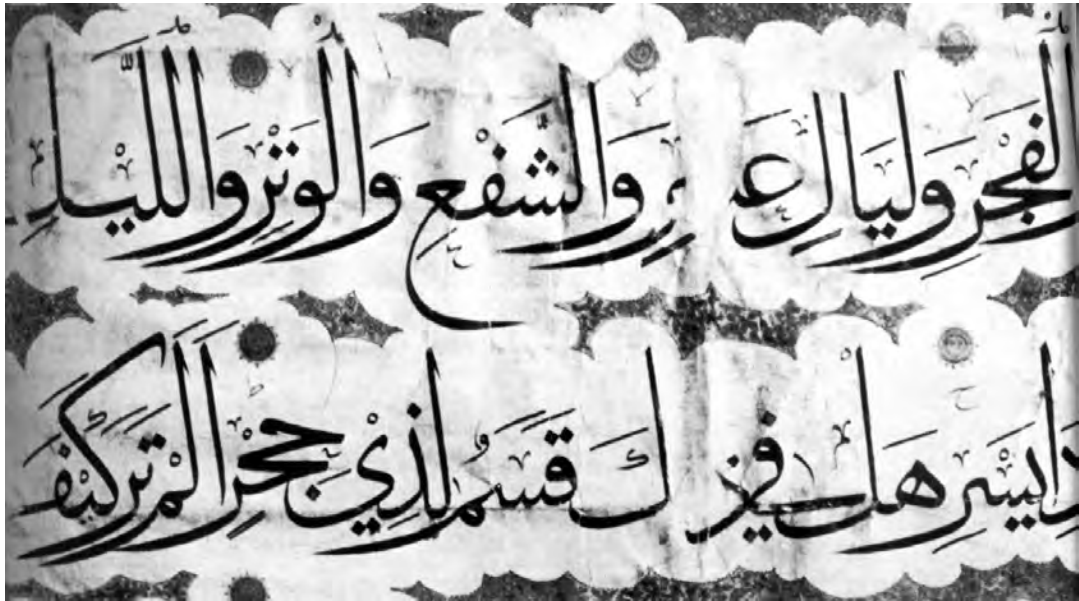 الْفَجْرِ وَلَيَالٍ عَشْرٍ وَالشَّفْعِ وَالْوَتْرِ وَاللَّيْلِ
إِذَا يَسْرِ هَلْ فِي ذَٰلِكَ قَسَمٌ لِذِي حِجْرٍ أَلَمْ تَرَ كَيْفَ